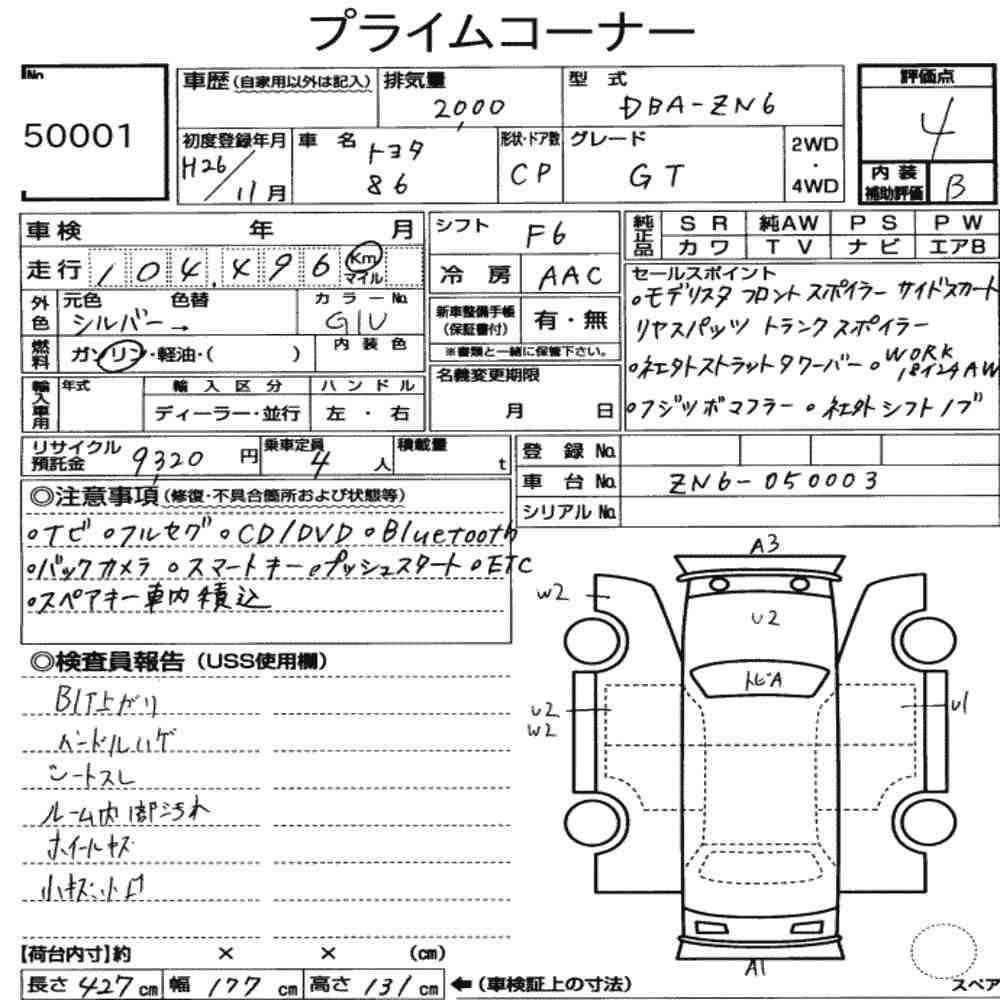 プライムコーナー
No.
50001
車歴(自家用以外は記入)
排気量
2,000
型式
DBA-ZN6
評価点
4
初度登録年月
H26/11月
車名
トヨタ
86
形状・ドア数
CP
グレード
GT
2WD
・
4WD
内装
補助評価
B
車検 年 月
走行 104,496 Km
マイル
シフト F6
冷房 AAC
純正品
SR 純AW PS PW
カワ TV ナビ エアB
セールスポイント
○モデリスタ フロントスポイラー サイドスカート
リヤスパッツ トランクスポイラー
○社外ストラットタワーバー ○WORK
18インチAW
○フジツボマフラー ○社外シフトノブ
外色
元色 色替
シルバー→
カラーNo.
G1U
新車整備手帳
(保証書付)
有・無
※書類と一緒に保管下さい。
燃料
ガソリン・軽油・( )
内装色
輸入車用
年式
輸入区分
ディーラー・並行
ハンドル
左・右
名義変更期限
月 日
リサイクル
預託金
9,320円
乗車定員
4人
積載量
t
登録No.
車台No. ZN6-050003
シリアルNo.
◎注意事項(修復・不具合箇所および状態等)
○TV ○フルセグ ○CD/DVD ○Bluetooth
○バックカメラ ○スマートキー ○プッシュスタート ○ETC
○スペアキー車内積込
◎検査員報告(USS使用欄)
ハンドルハゲ
シートスレ
ルーム内部汚れ
ホイールキズ
小キズ小凹
A3
W2
U2
トビA
U2
W2
U1
A1
スペア
【荷台内寸】約 × × (cm)
長さ427cm 幅177cm 高さ131cm ←(車検証上の寸法)